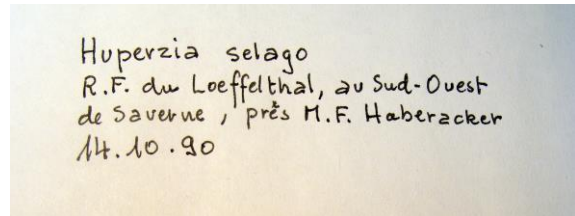 Huperzia selago
R.F. du Loeffelthal, au Sud-Ouest
de Saverne, près M.F. Haberacker
14.10.90